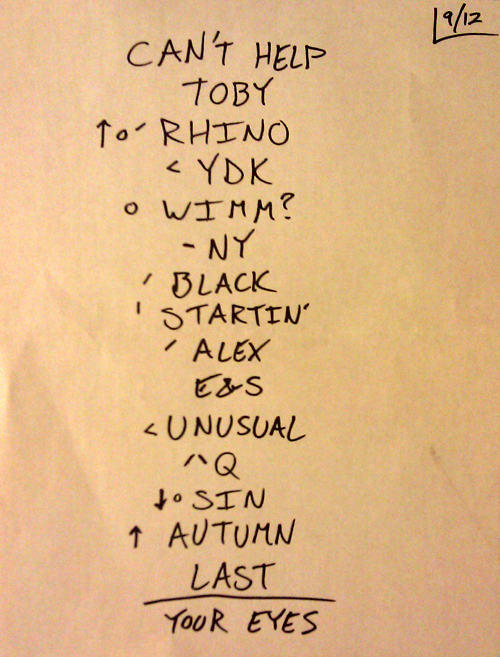 9/12
CAN'T HELP
TOBY
↑o´ RHINO
< YDK
o WIMM?
- NY
´ BLACK
' STARTIN'
´ ALEX
E&S
< UNUSUAL
^^ Q
↓o SIN
↑ AUTUMN
LAST
YOUR EYES